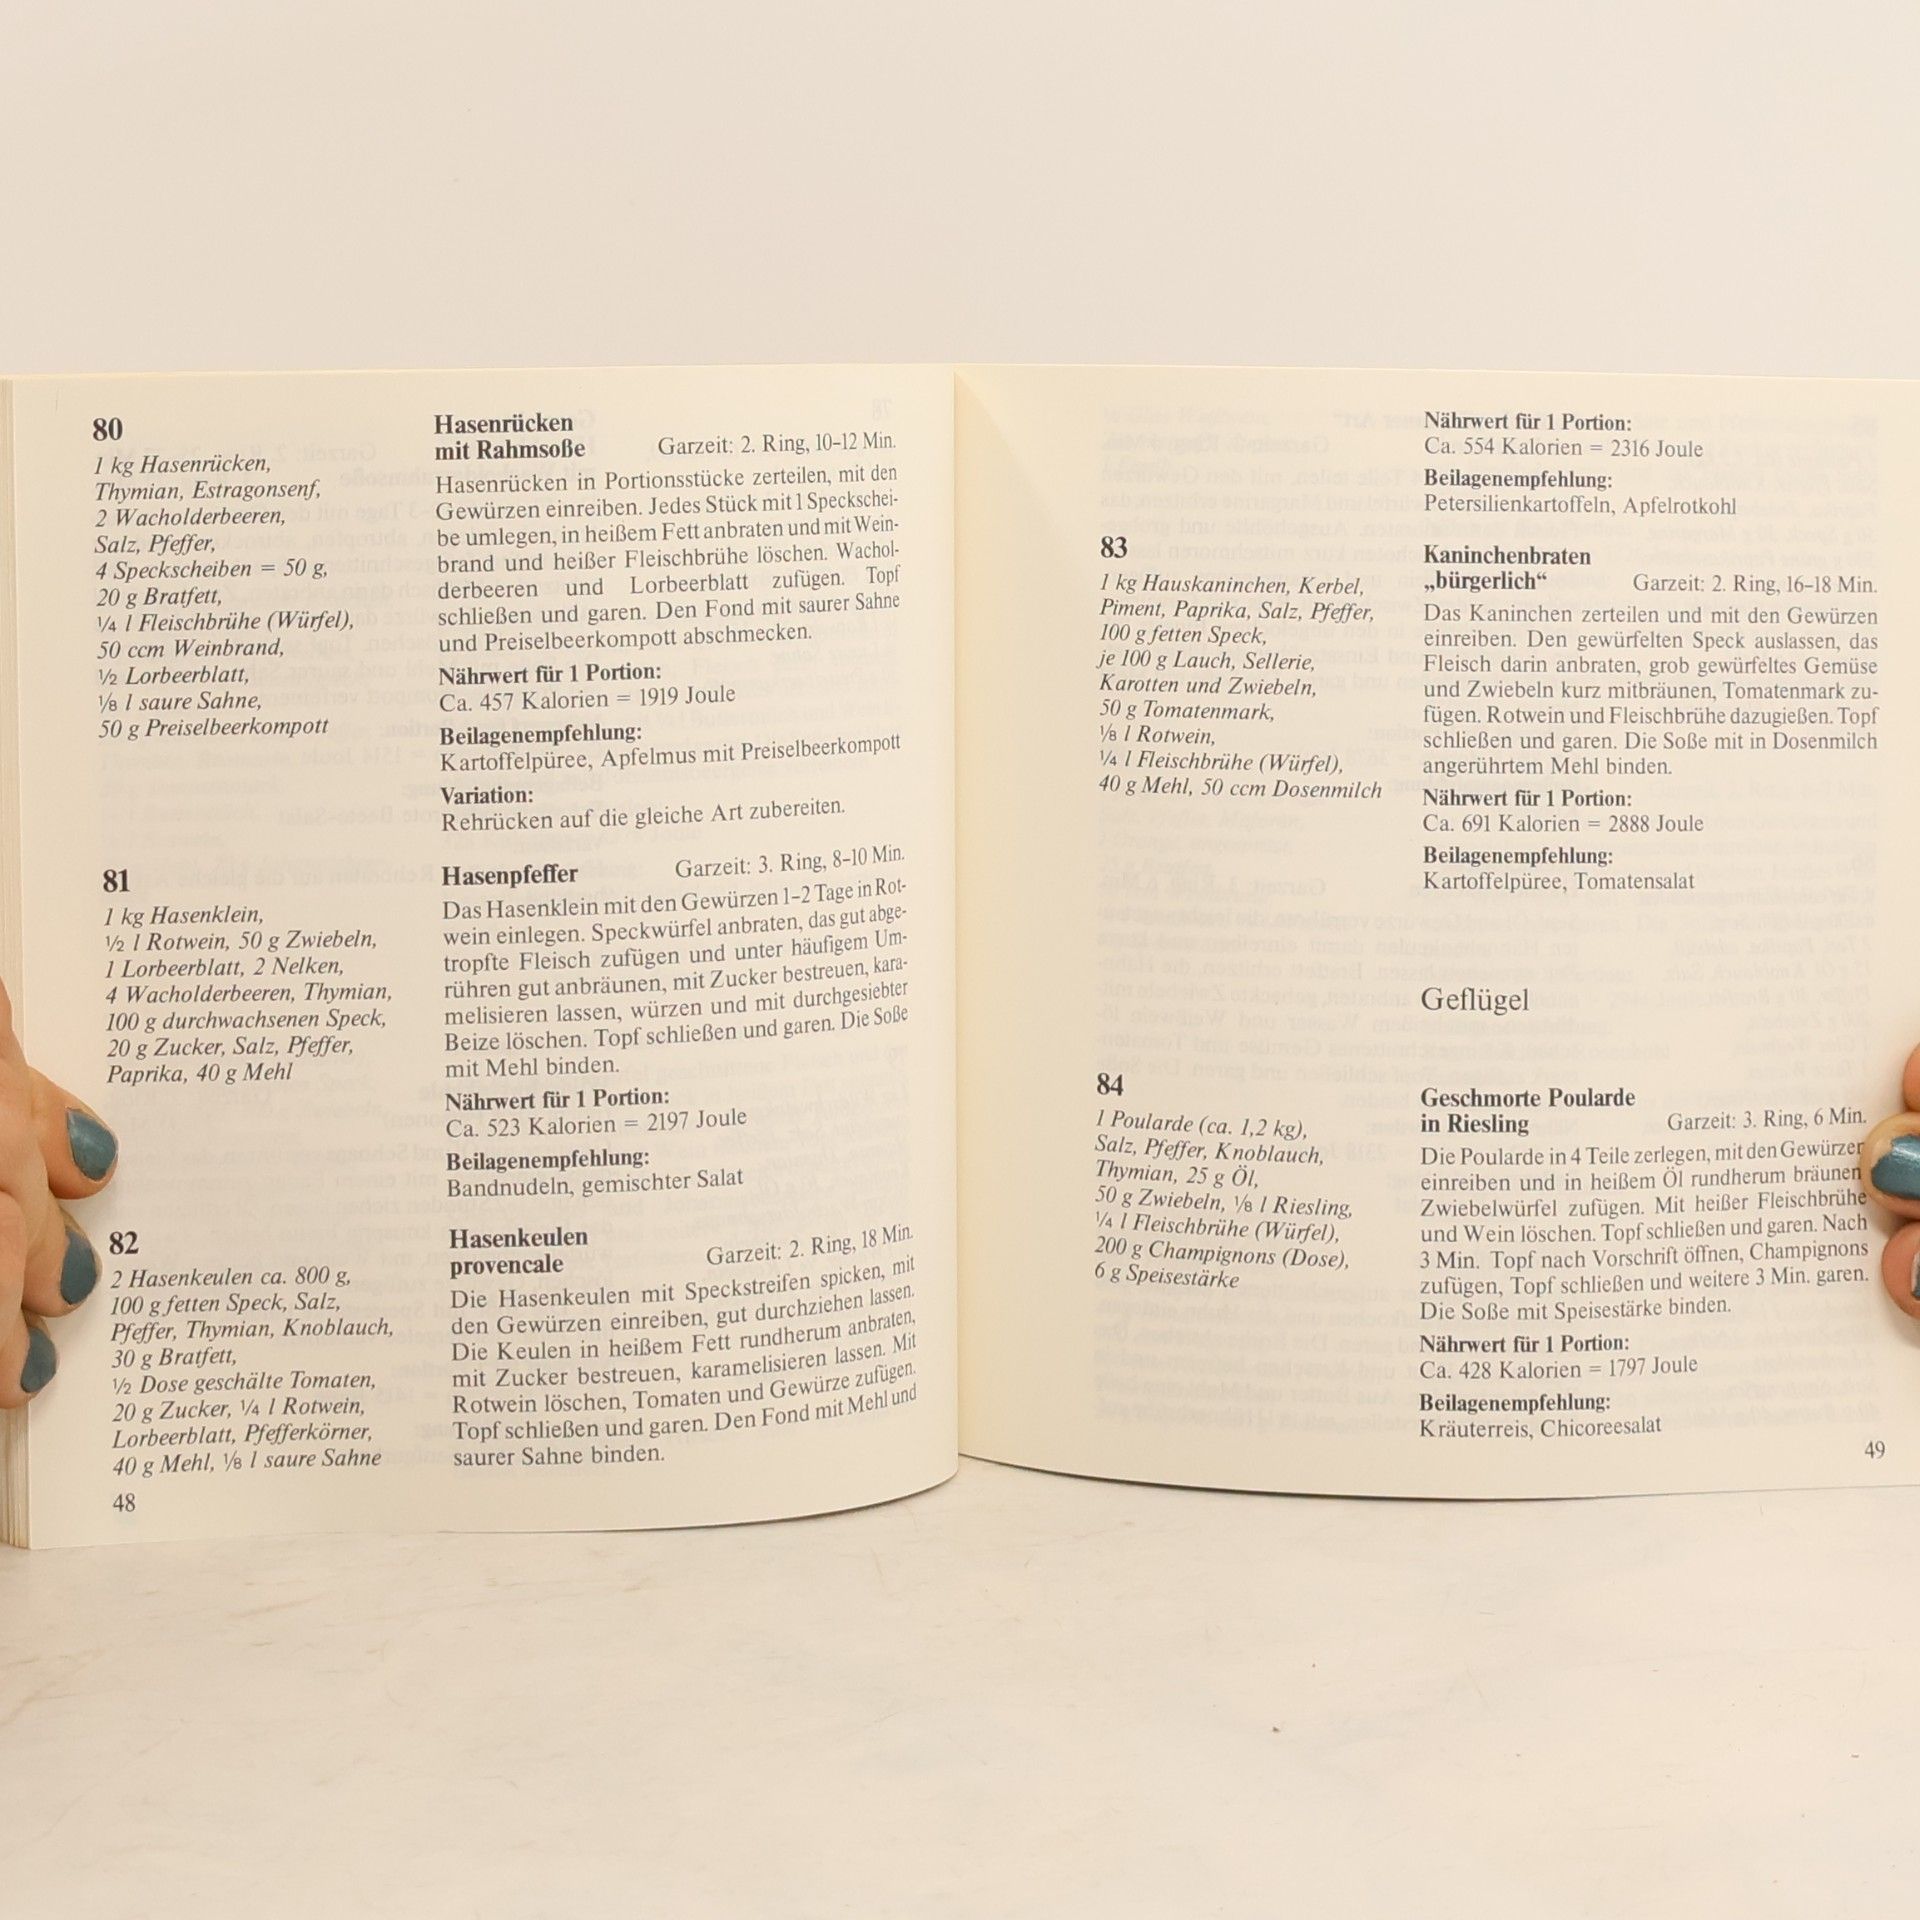 80
1 kg Hasenrücken,
Thymian, Estragonsenf,
2 Wacholderbeeren,
Salz, Pfeffer,
4 Speckscheiben = 50 g,
20 g Bratfett,
¼ l Fleischbrühe (Würfel),
50 ccm Weinbrand,
½ Lorbeerblatt,
⅛ l saure Sahne,
50 g Preiselbeerkompott
Hasenrücken
mit Rahmsoße Garzeit: 2. Ring, 10–12 Min.
Hasenrücken in Portionsstücke zerteilen, mit den
Gewürzen einreiben. Jedes Stück mit 1 Speckschei-
be umlegen, in heißem Fett anbraten und mit Wein-
brand und heißer Fleischbrühe löschen. Wachol-
derbeeren und Lorbeerblatt zufügen. Topf
schließen und garen. Den Fond mit saurer Sahne
und Preiselbeerkompott abschmecken.
Nährwert für 1 Portion:
Ca. 457 Kalorien = 1919 Joule
Beilagenempfehlung:
Kartoffelpüree, Apfelmus mit Preiselbeerkompott
Variation:
Rehrücken auf die gleiche Art zubereiten.
81
1 kg Hasenklein,
½ l Rotwein, 50 g Zwiebeln,
1 Lorbeerblatt, 2 Nelken,
4 Wacholderbeeren, Thymian,
100 g durchwachsenen Speck,
20 g Zucker, Salz, Pfeffer,
Paprika, 40 g Mehl
Hasenpfeffer Garzeit: 3. Ring, 8–10 Min.
Das Hasenklein mit den Gewürzen 1–2 Tage in Rot-
wein einlegen. Speckwürfel anbraten, das gut abge-
tropfte Fleisch zufügen und unter häufigem Um-
rühren gut anbräunen, mit Zucker bestreuen, kara-
melisieren lassen, würzen und mit durchgesiebter
Beize löschen. Topf schließen und garen. Die Soße
mit Mehl binden.
Nährwert für 1 Portion:
Ca. 523 Kalorien = 2197 Joule
Beilagenempfehlung:
Bandnudeln, gemischter Salat
82
2 Hasenkeulen ca. 800 g,
100 g fetten Speck, Salz,
Pfeffer, Thymian, Knoblauch,
30 g Bratfett,
½ Dose geschälte Tomaten,
20 g Zucker, ¼ l Rotwein,
Lorbeerblatt, Pfefferkörner,
40 g Mehl, ⅛ l saure Sahne
Hasenkeulen
provencale Garzeit: 2. Ring, 18 Min.
Die Hasenkeulen mit Speckstreifen spicken, mit
den Gewürzen einreiben, gut durchziehen lassen.
Die Keulen in heißem Fett rundherum anbraten,
mit Zucker bestreuen, karamelisieren lassen. Mit
Rotwein löschen, Tomaten und Gewürze zufügen.
Topf schließen und garen. Den Fond mit Mehl und
saurer Sahne binden.
48
Nährwert für 1 Portion:
Ca. 554 Kalorien = 2316 Joule
Beilagenempfehlung:
Petersilienkartoffeln, Apfelrotkohl
83
1 kg Hauskaninchen, Kerbel,
Piment, Paprika, Salz, Pfeffer,
100 g fetten Speck,
je 100 g Lauch, Sellerie,
Karotten und Zwiebeln,
50 g Tomatenmark,
⅛ l Rotwein,
¼ l Fleischbrühe (Würfel),
40 g Mehl, 50 ccm Dosenmilch
Kaninchenbraten
„bürgerlich“ Garzeit: 2. Ring, 16–18 Min.
Das Kaninchen zerteilen und mit den Gewürzen
einreiben. Den gewürfelten Speck auslassen, das
Fleisch darin anbraten, grob gewürfeltes Gemüse
und Zwiebeln kurz mitbräunen, Tomatenmark zu-
fügen. Rotwein und Fleischbrühe dazugießen. Topf
schließen und garen. Die Soße mit in Dosenmilch
angerührtem Mehl binden.
Nährwert für 1 Portion:
Ca. 691 Kalorien = 2888 Joule
Beilagenempfehlung:
Kartoffelpüree, Tomatensalat
Geflügel
84
1 Poularde (ca. 1,2 kg),
Salz, Pfeffer, Knoblauch,
Thymian, 25 g Öl,
50 g Zwiebeln, ⅛ l Riesling,
¼ l Fleischbrühe (Würfel),
200 g Champignons (Dose),
6 g Speisestärke
Geschmorte Poularde
in Riesling Garzeit: 3. Ring, 6 Min.
Die Poularde in 4 Teile zerlegen, mit den Gewürzen
einreiben und in heißem Öl rundherum bräunen
Zwiebelwürfel zufügen. Mit heißer Fleischbrühe
und Wein löschen. Topf schließen und garen. Nach
3 Min. Topf nach Vorschrift öffnen, Champignons
zufügen, Topf schließen und weitere 3 Min. garen.
Die Soße mit Speisestärke binden.
Nährwert für 1 Portion:
Ca. 428 Kalorien = 1797 Joule
Beilagenempfehlung:
Kräuterreis, Chicoreesalat
49